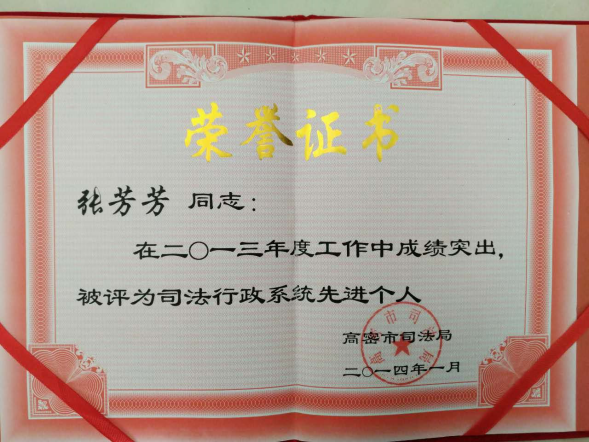 荣誉证书
张芳芳 同志：
在二〇一三年度工作中成绩突出，
被评为司法行政系统先进个人
高密市司法局
二〇一四年一月
高密市司法局